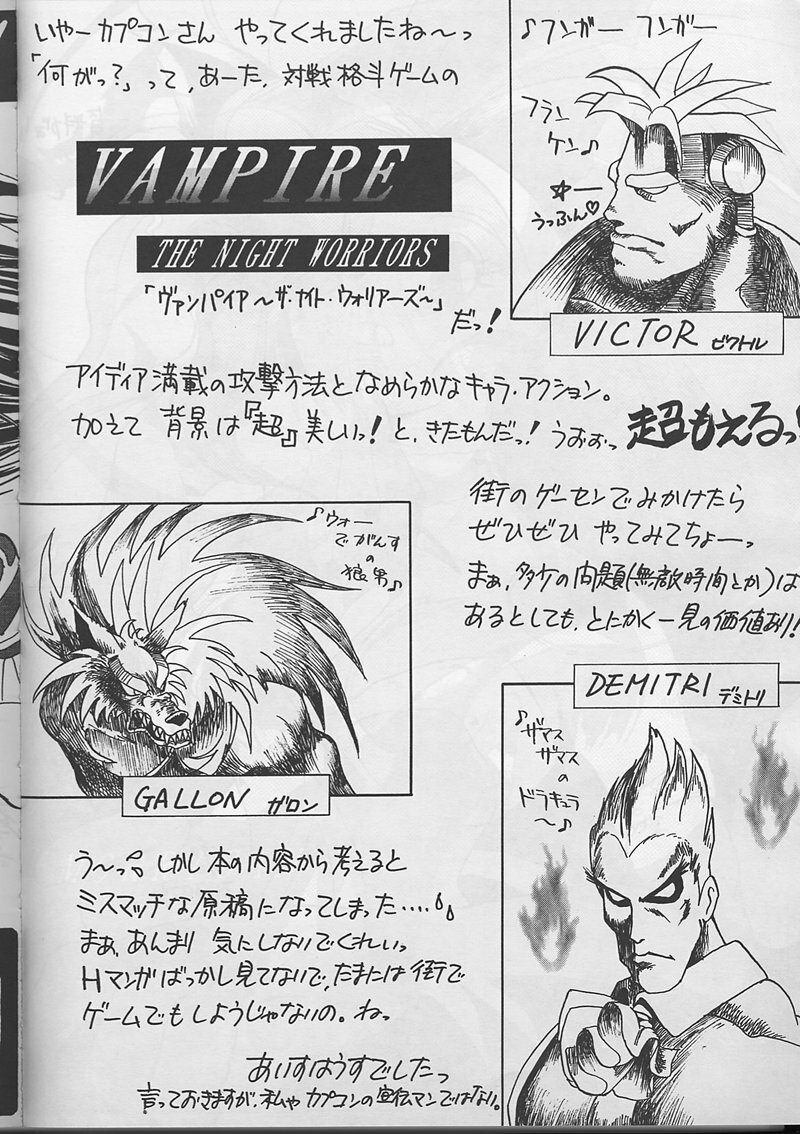 いやーカプコンさん やってくれましたね〜っ
「何がっ?」って、あーた、対戦格斗ゲームの
VAMPIRE
THE NIGHT WORRIORS
「ヴァンパイア〜ザ・ナイト・ウォリアーズ〜」
だっ!
♪フンガー フンガー
フラン
ケン♪
☆ー
うっふん♡
VICTOR ビクトル
アイディア満載の攻撃方法となめらかなキャラ・アクション。
加えて 背景は『超』美しいっ! と、きたもんだっ! うおぉっ 超もえるっ!
街のゲーセンでみかけたら
ぜひぜひ やってみてちょーっ
まぁ、多少の問題(無敵時間とか)は
あるとしても、とにかく一見の価値あり!
♪ウォー
でがんす
の
狼男♪
GALLON ガロン
DEMITRI デミトリ
♪ザマス
ザマス
の
ドラキュラ
〜♪
う〜っ。しかし本の内容から考えると
ミスマッチな原稿になってしまった‥‥
まぁ、あんまり 気にしないでくれいっ
Hマンガばっかし見てないで、たまには街で
ゲームでもしようじゃないの。ねっ
あいすはうすでしたっ
言っておきますが、私ゃカプコンの宣伝マンではない。